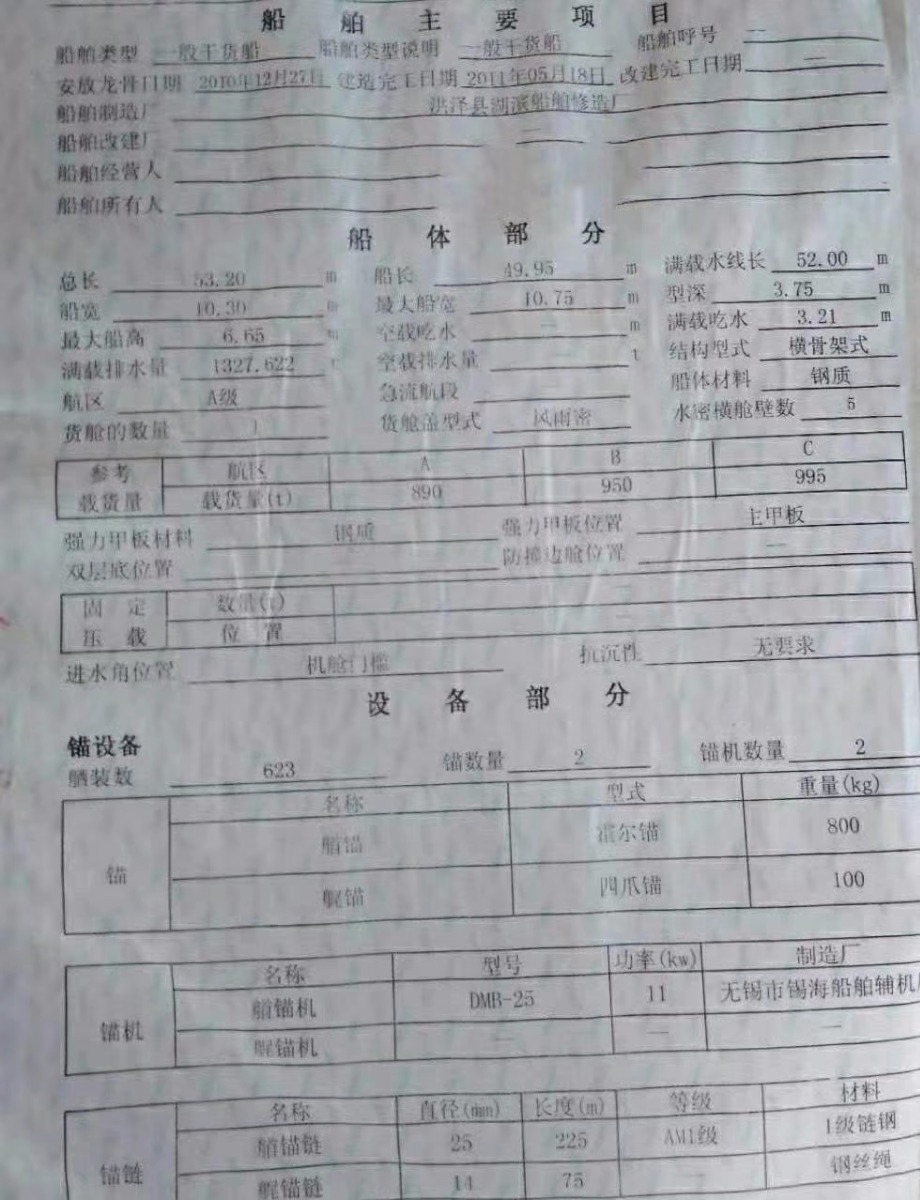 船舶主要项目
船舶类型 一般干货船 船舶类型说明 一般干货船 船舶呼号 —
安放龙骨日期 2010年12月27日 建造完工日期 2011年05月18日 改建完工日期 —
船舶制造厂 洪泽县湖滨船舶修造厂
船舶改建厂 —
船舶经营人
船舶所有人
船体部分
总长 53.20 m 船长 49.95 m 满载水线长 52.00 m
船宽 10.30 m 最大船宽 10.75 m 型深 3.75 m
最大船高 6.65 m 空载吃水 — m 满载吃水 3.21 m
满载排水量 1327.622 t 空载排水量 t 结构型式 横骨架式
航区 A级 急流航段 — 船体材料 钢质
货舱的数量 1 货舱盖型式 风雨密 水密横舱壁数 5
参考 航区 A B C
载货量 载货量(t) 890 950 995
强力甲板材料 钢质 强力甲板位置 主甲板
双层底位置 防撞边舱位置 —
固定 数量(t) —
压载 位置 —
进水角位置 机舱门槛 抗沉性 无要求
设备部分
锚设备
舾装数 623 锚数量 2 锚机数量 2
名称 型式 重量(kg)
锚 艏锚 霍尔锚 800
艉锚 四爪锚 100
名称 型号 功率(kw) 制造厂
锚机 艏锚机 DMB-25 11 无锡市锡海船舶辅机厂
艉锚机 — — —
名称 直径(mm) 长度(m) 等级 材料
锚链 艏锚链 25 225 AM1级 1级链钢
艉锚链 14 75 — 钢丝绳